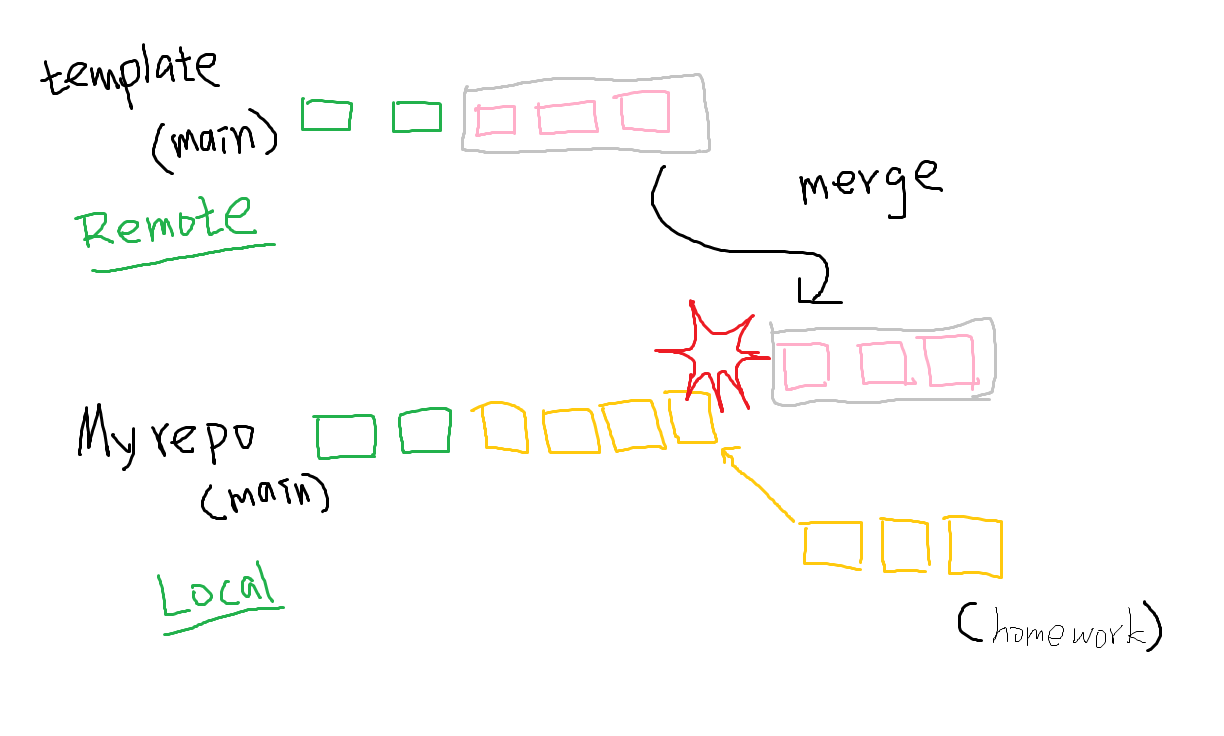 template
(main)
Remote
merge
My repo
(main)
Local
(homework)